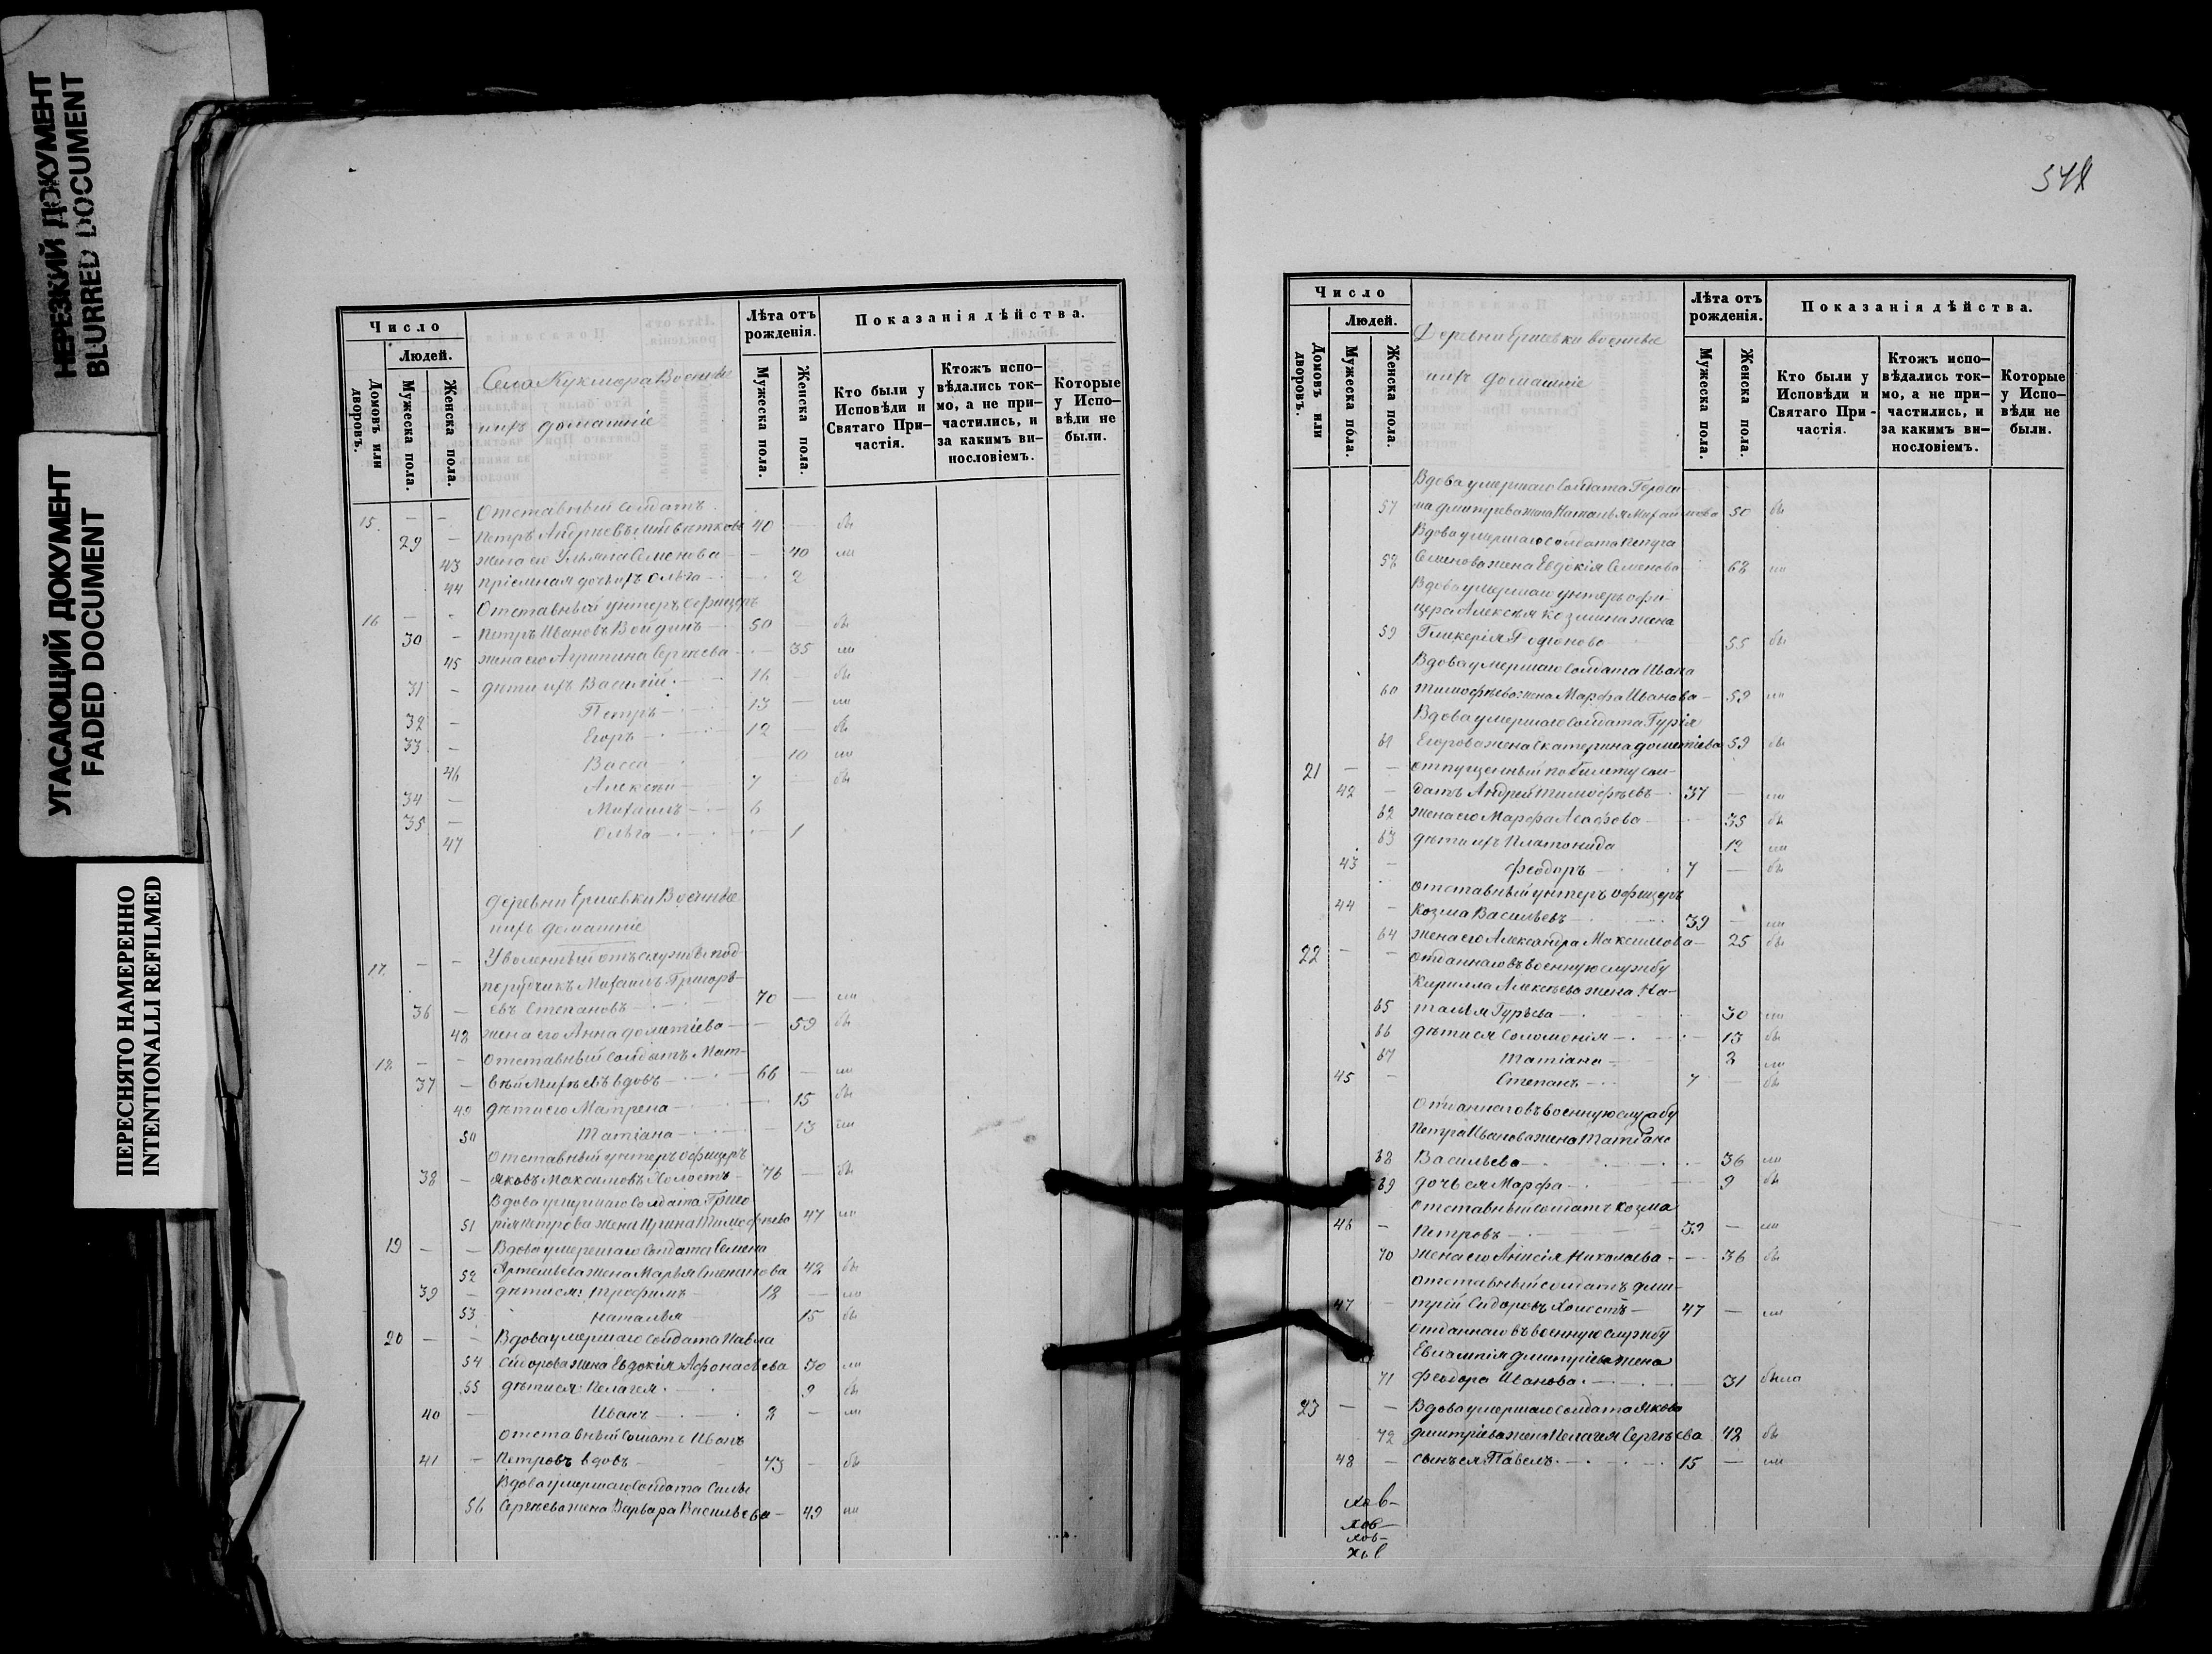 НЕРЕЗКИЙ ДОКУМЕНТ
BLURRED DOCUMENT
УГАСАЮЩИЙ ДОКУМЕНТ
FADED DOCUMENT
ПЕРЕСНЯТО НАМЕРЕННО
INTENTIONALLI REFILMED
Число
Людей.
Домовъ или дворовъ.
Мужеска пола.
Женска пола.
Села Кукмора Военные
ихъ домашніе
Лѣта отъ рожденія.
Мужеска пола.
Женска пола.
Показанія дѣйства.
Кто были у Исповѣди и Святаго Причастія.
Ктожъ исповѣдались токмо, а не причастились, и за какимъ винословіемъ.
Которые у Исповѣди не были.
15. — — Отставный солдатъ
29 — Петръ Андреевъ 40 — бы
43 жена его Ульяна Семенова — 40 ли
44 пріемная дочь ихъ Ольга — 2
16 — - Отставный унтеръ офицеръ
30 - Петръ Ивановъ Войдинъ — 50 — бы
45 жена его Агрипина Сергѣева — 35 ли
31 - дѣти ихъ Василій. — 16 — бы
32 - Петръ — 13 — ли
33 - Егоръ — 12 — бы
46 Васса — 10 ли
34 - Алексѣй — 7 — бы
35 - Михаилъ — 6
47 Ольга — 1
деревни Ершевки Военные
ихъ домашніе
17. — — Уволенный отъ службы под
порутчикъ Михаилъ Григорь-
36 — евъ Степановъ — 70 — ли
48 жена его Анна Дометіева — 59 бы
18 — - Отставный солдатъ Мат-
37 — вѣй Михѣевъ вдовъ — 66 — ли
49 дѣти его Матрена — 15 бы
50 Татіана — 13 ли
Отставный унтеръ офицеръ
38 — Яковъ Максимовъ Холостъ 76 — бы
Вдова умершаго солдата Григо
51 рія Петрова жена Ирина Тимофѣева 47 ли
19 — — Вдова умершаго солдата Семена
52 Артемьева жена Марья Степанова 42 бы
39 — дѣти ея: Трофимъ — 18 — ли
53 Наталья — 15 бы
20 — — Вдова умершаго солдата Павла
54 Сидорова жена Евдокія Афонасьева 30 ли
55 дѣти ея: Пелагея. — 9 бы
40 — Иванъ — 2 — ли
отставный солдатъ Иванъ
41 — Петровъ вдовъ — 43 — бы
Вдова умершаго солдата Силы
56 Сергѣева жена Варвара Васильева — 49 ли
Число
Людей.
Домовъ или дворовъ.
Мужеска пола.
Женска пола.
Деревни Ершевки военные
ихъ домашніе
Лѣта отъ рожденія.
Мужеска пола.
Женска пола.
Показанія дѣйства.
Кто были у Исповѣди и Святаго Причастія.
Ктожъ исповѣдались токмо, а не причастились, и за какимъ винословіемъ.
Которые у Исповѣди не были.
Вдова умершаго солдата Гераси-
57 ма Дмитріева жена Наталья Михайлова 50 бы
Вдова умершаго солдата Петра
58 Семенова жена Евдокія Семенова 68 ли
Вдова умершаго унтеръ офи-
цера Алексѣя Козмина жена
59 Гликерія Родіонова 55 бы
Вдова умершаго солдата Ивана
60 Тимофѣева жена Марфа Иванова — 59 ли
Вдова умершаго солдата Гурія
61 Егорова жена Екатерина Дометіева 59 бы
21 — — отпущенный по билету сол-
42 — датъ Андрей Тимофѣевъ — 37 — ли
62 жена его Марфа — 35 бы
63 дѣти ихъ Платонида 12 ли
43 — Феодоръ — 7 — бы
отставный унтеръ офицеръ
44 — Козма Васильевъ — 39 — ли
64 жена его Александра Максимова — 25 бы
22 — — отданнаго въ военную службу
Кирилла Алексѣева жена На-
65 талья Гурьева — 30 ли
66 дѣти ея Соломонія — 13 бы
67 Татіана — 2 ли
45 — Степанъ — 7 — бы
отданнаго въ военную службу
Петра Иванова жена Татіана
68 Васильева — 36 ли
69 дочь ея Марфа — 9 бы
отставный солдатъ Козма
46 — Петровъ — 39 — ли
70 жена его Анисія Николаева — 36 бы
отставный солдатъ Дми-
47 — трій Сидоровъ Холостъ — 47 — ли
отданнаго въ военную службу
Евлампія Дмитріева жена
71 Феодора Иванова. — 31 была
23 — — Вдова умершаго солдата Якова
72 Дмитріева жена Пелагея Сергѣева 42 бы
48 — сынъ ея Павелъ. — 15 — ли